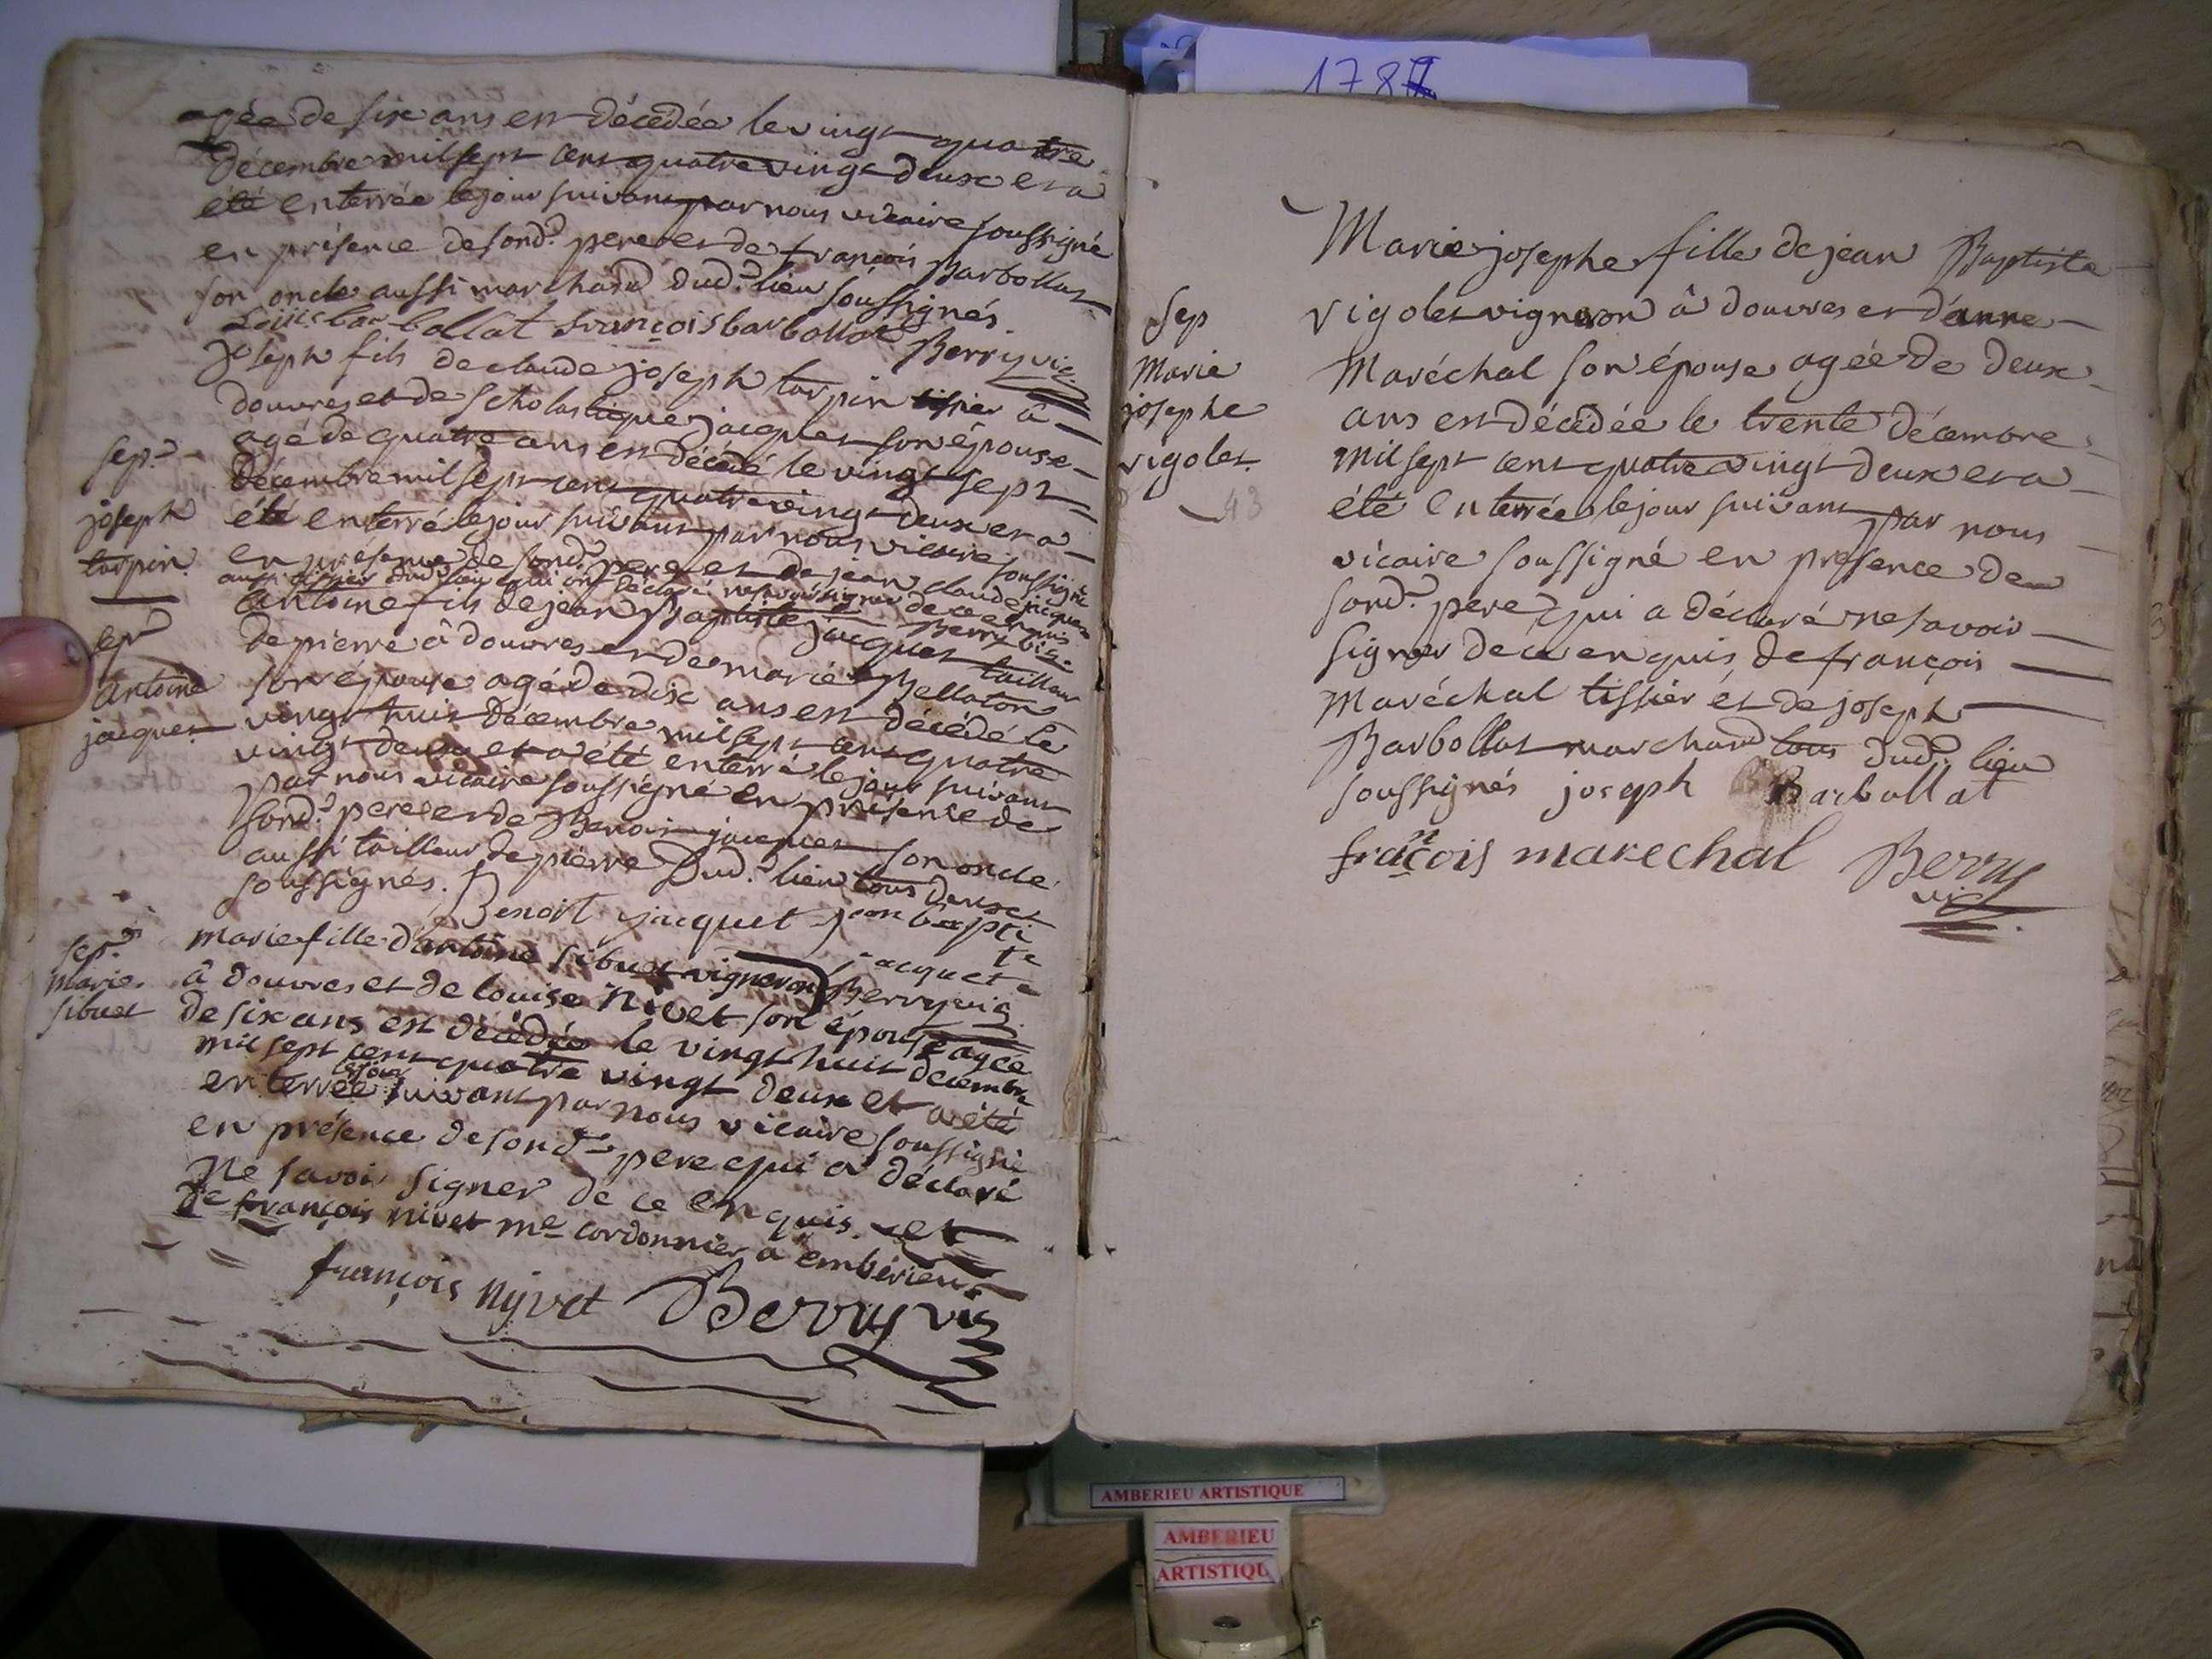 agée de six ans est décédée le vingt quatre
décembre mil sept cent quatre vingt deux et a
été enterrée le jour suivant par nous vicaire soussigné
en présence de sond.t pere et de françois Barbollat
son oncle aussi marchand dud.t lieu soussignés.
Louis barbollat françois barbollat Berry vic.
joseph fils de claude joseph tarpin tissier â
douvres et de Scholastique jacquet son épouse
agé de quatre ans est décédé le vingt sept
décembre mil sept cent quatre vingt deux et a
été enterré le jour suivant par nous vicaire soussigné
en présence de sond.t pere et de jean claude jacquet
aussi tissier dud.t lieu qui ont déclaré ne savoir signer de ce enquis
Berry vic.
sep.re
joseph
tarpin
antoine fils de jean Baptiste jacquet tailleur
de pierre â douvres et de marie Bellaton
son épouse agé de dix ans est décédé le
vingt huit décembre mil sept cent quatre
vingt deux et a été enterré le jour suivant
par nous vicaire soussigné en présence de
sond.t pere et de Benoit jacquet son oncle
aussi tailleur de pierre dud.t lieu tous deux
soussignés. Benoit jacquet jean bapti
te jacquet
Berry vic.
sep.re
antoine
jacquet
marie fille d'antoine sibuet vigneron
â douvres et de louise Nivet son épouse agée
de six ans est décédée le vingt huit décembre
mil sept cent quatre vingt deux et a été
enterrée le jour suivant par nous vicaire soussigné
en présence de sond.t pere qui a déclaré
Ne savoir signer de ce enquis et
de françois nivet m.e cordonnier a embérieu
sep.re
Marie
sibuet
françois nyvet Berry vic
1787
Marie josephe fille de jean Baptiste
vigolet vigneron â douvres et d'anne
Maréchal son épouse agée de deux
ans est décédée le trente décembre
mil sept cent quatre vingt deux et a
été enterrée le jour suivant par nous
vicaire soussigné en presence de
sond.t pere qui a déclaré ne savoir
signer de ce enquis de françois
Maréchal tissier et de joseph
Barbollat marchand tous dud.t lieu
soussignés joseph Barbollat
françois marechal Berry
vic
Sep
Marie
josephe
vigolet.
43
AMBERIEU ARTISTIQUE
AMBERIEU
ARTISTIQU